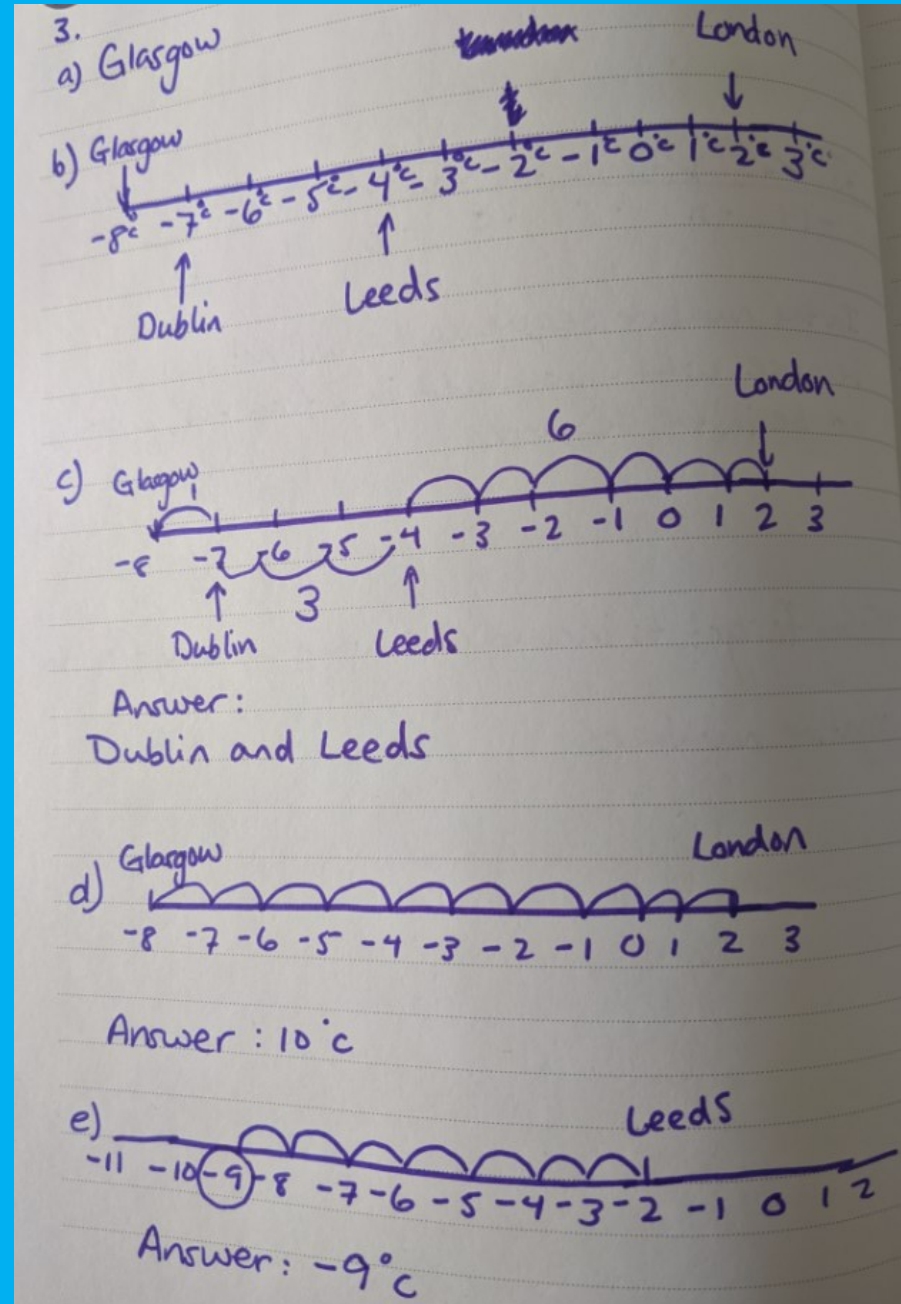 3.
a) Glasgow
London
b) Glasgow
-8°c -7°c -6°c -5°c -4°c -3°c -2°c -1°c 0°c 1°c 2°c 3°c
Dublin
Leeds
London
6
c) Glasgow
1
-8 -7 -6 -5 -4 -3 -2 -1 0 1 2 3
3
Dublin Leeds
Answer:
Dublin and Leeds
Glasgow London
d)
-8 -7 -6 -5 -4 -3 -2 -1 0 1 2 3
Answer: 10°c
e) Leeds
-11 -10 -9 -8 -7 -6 -5 -4 -3 -2 -1 0 1 2
Answer: -9°c